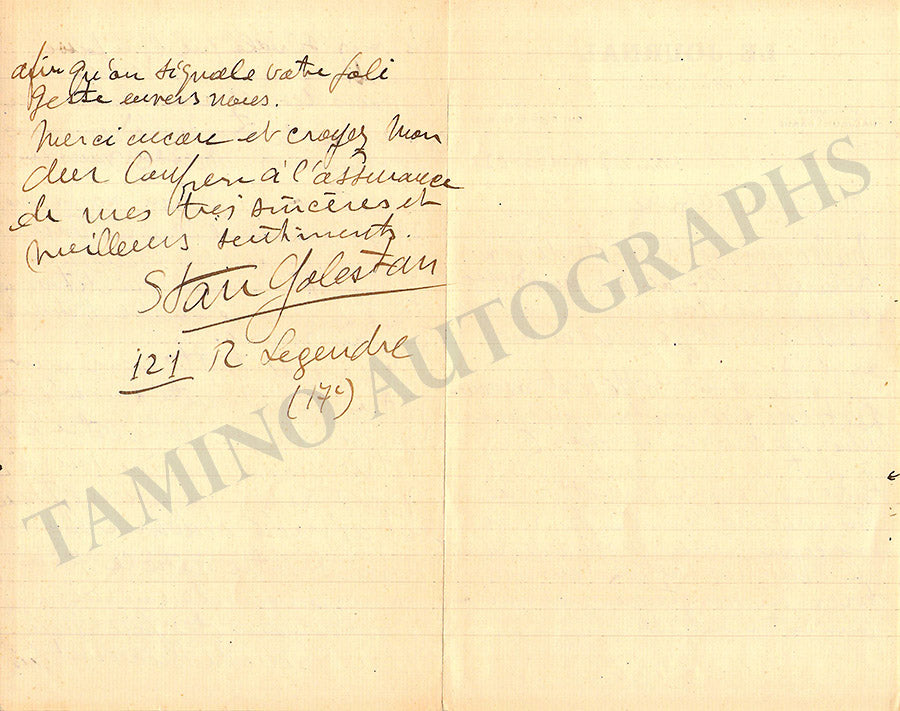 afin qu'on signale votre joli
geste envers nous.
Merci encore et croyez Mon
cher Confrere à l'assurance
de mes très sincères et
meilleurs sentiments.
Stan Golestan
121 R Legendre
(17e)
TAMINO AUTOGRAPHS